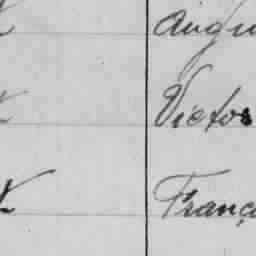 Augu
Victor
Franç